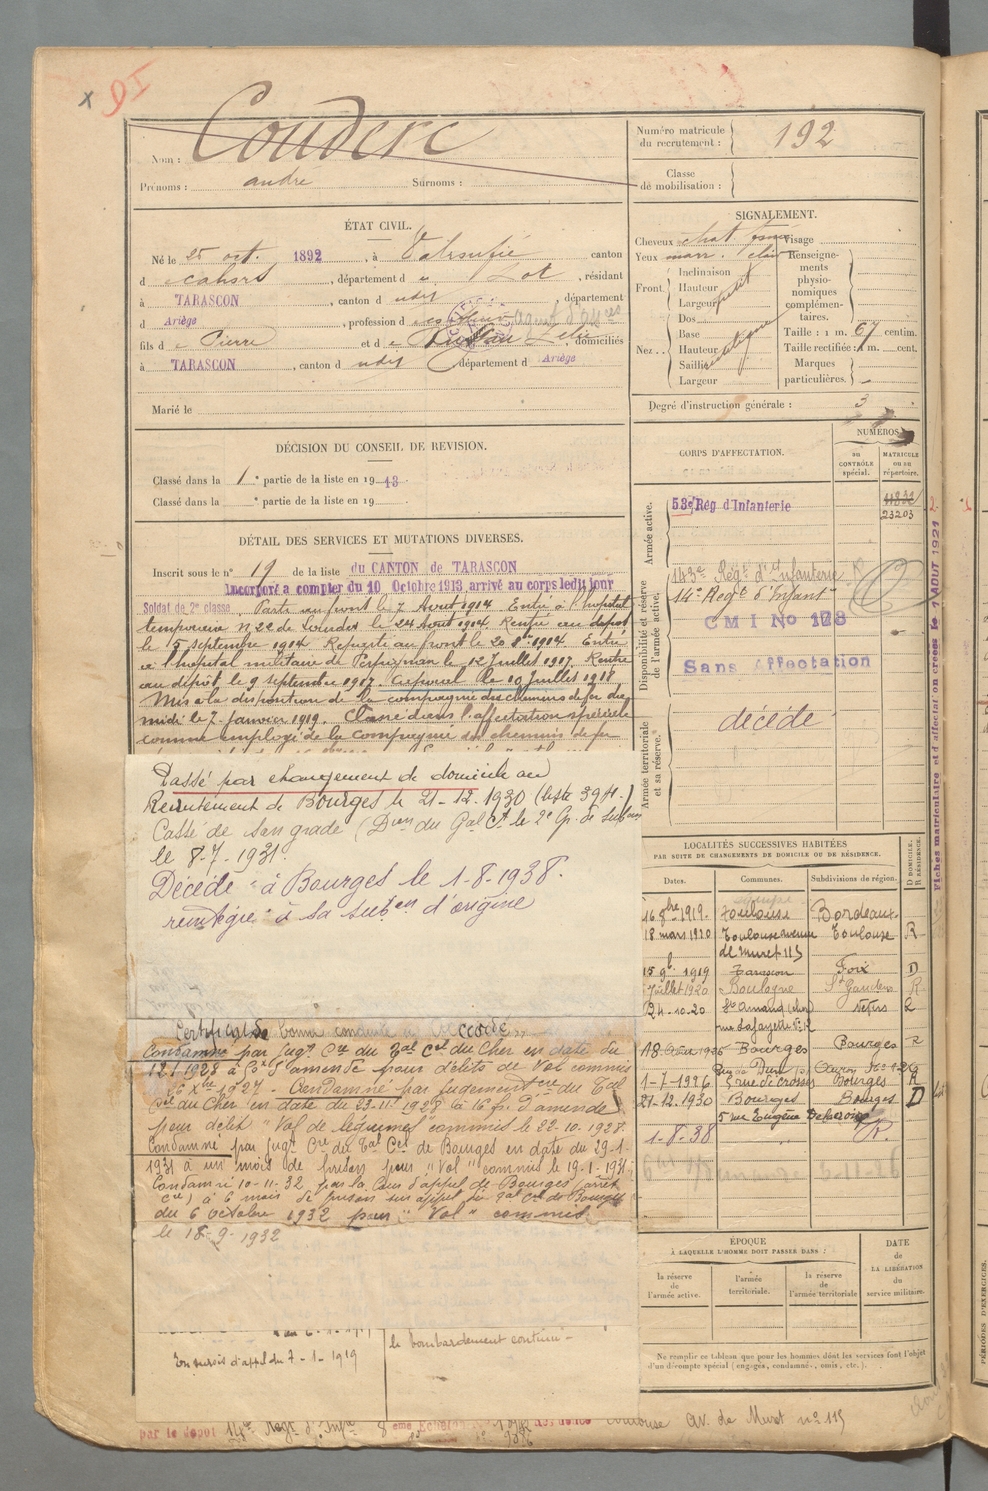 Nom : Couderc
Prénoms : andré Surnoms :
Numéro matricule du recrutement : 192
Classe de mobilisation :
ÉTAT CIVIL.
Né le 25 oct. 1892, à canton
d Cahors, département d u Lot, résidant
à TARASCON, canton d udit, département
d Ariège, profession d
fils d e Pierre et d e domiciliés
à TARASCON, canton d udit département d Ariège
Marié le
SIGNALEMENT.
Cheveux chat foncé Visage
Yeux marr. clair Renseignements physionomiques complémentaires.
Front Inclinaison
Hauteur
Largeur petit
Nez Dos
Base
Hauteur
Saillie
Largeur
Taille : 1 m. 67 centim.
Taille rectifiée : 1 m. cent.
Marques particulières.
Degré d'instruction générale : 3
DÉCISION DU CONSEIL DE REVISION.
Classé dans la 1e partie de la liste en 1913.
Classé dans la e partie de la liste en 19
DÉTAIL DES SERVICES ET MUTATIONS DIVERSES.
Inscrit sous le n° 19 de la liste du CANTON de TARASCON
Incorporé a compter du 10 Octobre 1913 arrivé au corps ledit jour
Soldat de 2e classe. Parti au front le 7 Aout 1914 Entré à l'hopital
temporaire n 22 de le 24 Aout 1914 Rentré au dépot
le 15 septembre 1914 Reparti au front le 20 1914 Entré
à l'hopital militaire de Perpignan le 12 Juillet 1917. Rentré
au dépôt le 9 septembre 1917. Caporal le 10 Juillet 1918
Mis à la disposition de la compagnie des chemins de fer du
midi le 7 Janvier 1919. Classé dans l'affectation spéciale
comme employé de la compagnie des chemins de fer
Passé par changement de domicile au
Recrutement de Bourges le 21-12-1930 (liste 3911.)
Cassé de son grade (Don du Gal Ct le 2e Gp. de
le 8-7-1931.
Décédé à Bourges le 1-8-1938.
reintégré à la subon d'origine
Certificat de bonne conduite accordé
Condamné par Jugt Cre du Tal Cel du Cher en date du
12 1 1928 à d'amende pour délits de Vol commis
le 6 Xbre 1927. Condamné par Jugement Cre du Tal
Cel du Cher en date du 23-11-1928 à 16 fr. d'amende
pour délit "Vol de légumes" commis le 22-10-1928.
Condamné par Jugt Cre du Tal Cel de Bourges en date du 29-1-
1931 à un mois de prison pour "Vol" commis le 19-1-1931.
Condamné 10-11-32 par la Cour d'appel de Bourges (arrêt
Cre) à 6 mois de prison sur appel du Tal Cel de Bourges
du 6 Octobre 1932 pour "Vol" commis
le 18-9-1932
Son sursis d'appel du 7-1-1919
le bombardement continu
par le depot 14e Regt d'Infie 8 eme Echelon Toulouse av. de Muret n° 115
CORPS D'AFFECTATION.
NUMÉROS
au CONTRÔLE spécial.
MATRICULE ou au répertoire.
Armée active.
53e Rég d'Infanterie
23203
Disponibilité et réserve de l'armée active.
143e Regt d'Infanterie
14e Regt d'Infantie
C M I No 178
Sans Affectation
Armée territoriale et sa réserve.
décédé
Fiches matriculaire et d'affectation créées le 1 AOUT 1921
LOCALITÉS SUCCESSIVES HABITÉES
PAR SUITE DE CHANGEMENTS DE DOMICILE OU DE RÉSIDENCE.
Dates. Communes. Subdivisions de région. D DOMICILE. R RÉSIDENCE.
16 8bre 1919. Toulouse Bordeaux
18 mars 1920 Toulouse avenue Toulouse R
de Muret 115
15 9b 1919 Tarascon Foix D
Juillet 1920 Boulogne St Gaudens R
4-10-20 St Amand (Cher) Nevers R
rue Lafayette N° 12
Bourges Bourges R
1-7-1926 5 rue de crosses Bourges R
21-12-1930 Bourges Bourges D
5 rue Eugène Delacroix
1-8-38 R.
ÉPOQUE
À LAQUELLE L'HOMME DOIT PASSER DANS :
la réserve de l'armée active.
l'armée territoriale.
la réserve de l'armée territoriale
DATE de LA LIBÉRATION du service militaire.
Ne remplir ce tableau que pour les hommes dont les services font l'objet
d'un décompte spécial (engagés, condamné, omis, etc.).
PÉRIODES D'EXERCICES.